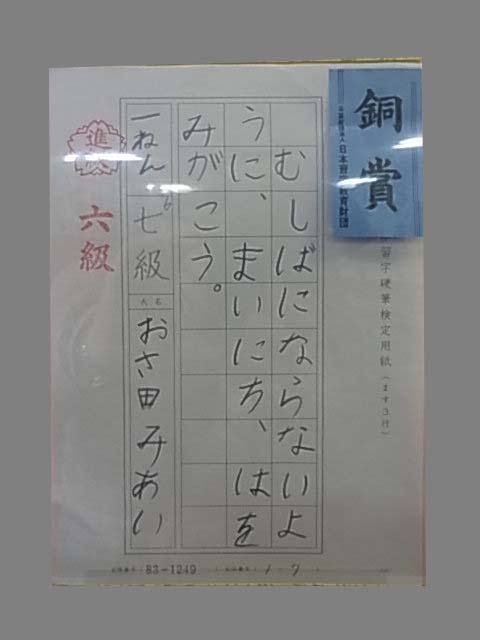 銅賞
日本習字教育財団
習字硬筆検定用紙(ます3行)
むしばにならないよ
うに、まいにち、はを
みがこう。
一ねん 七級 氏名 おさ田みあい
進級
六級
83-1249